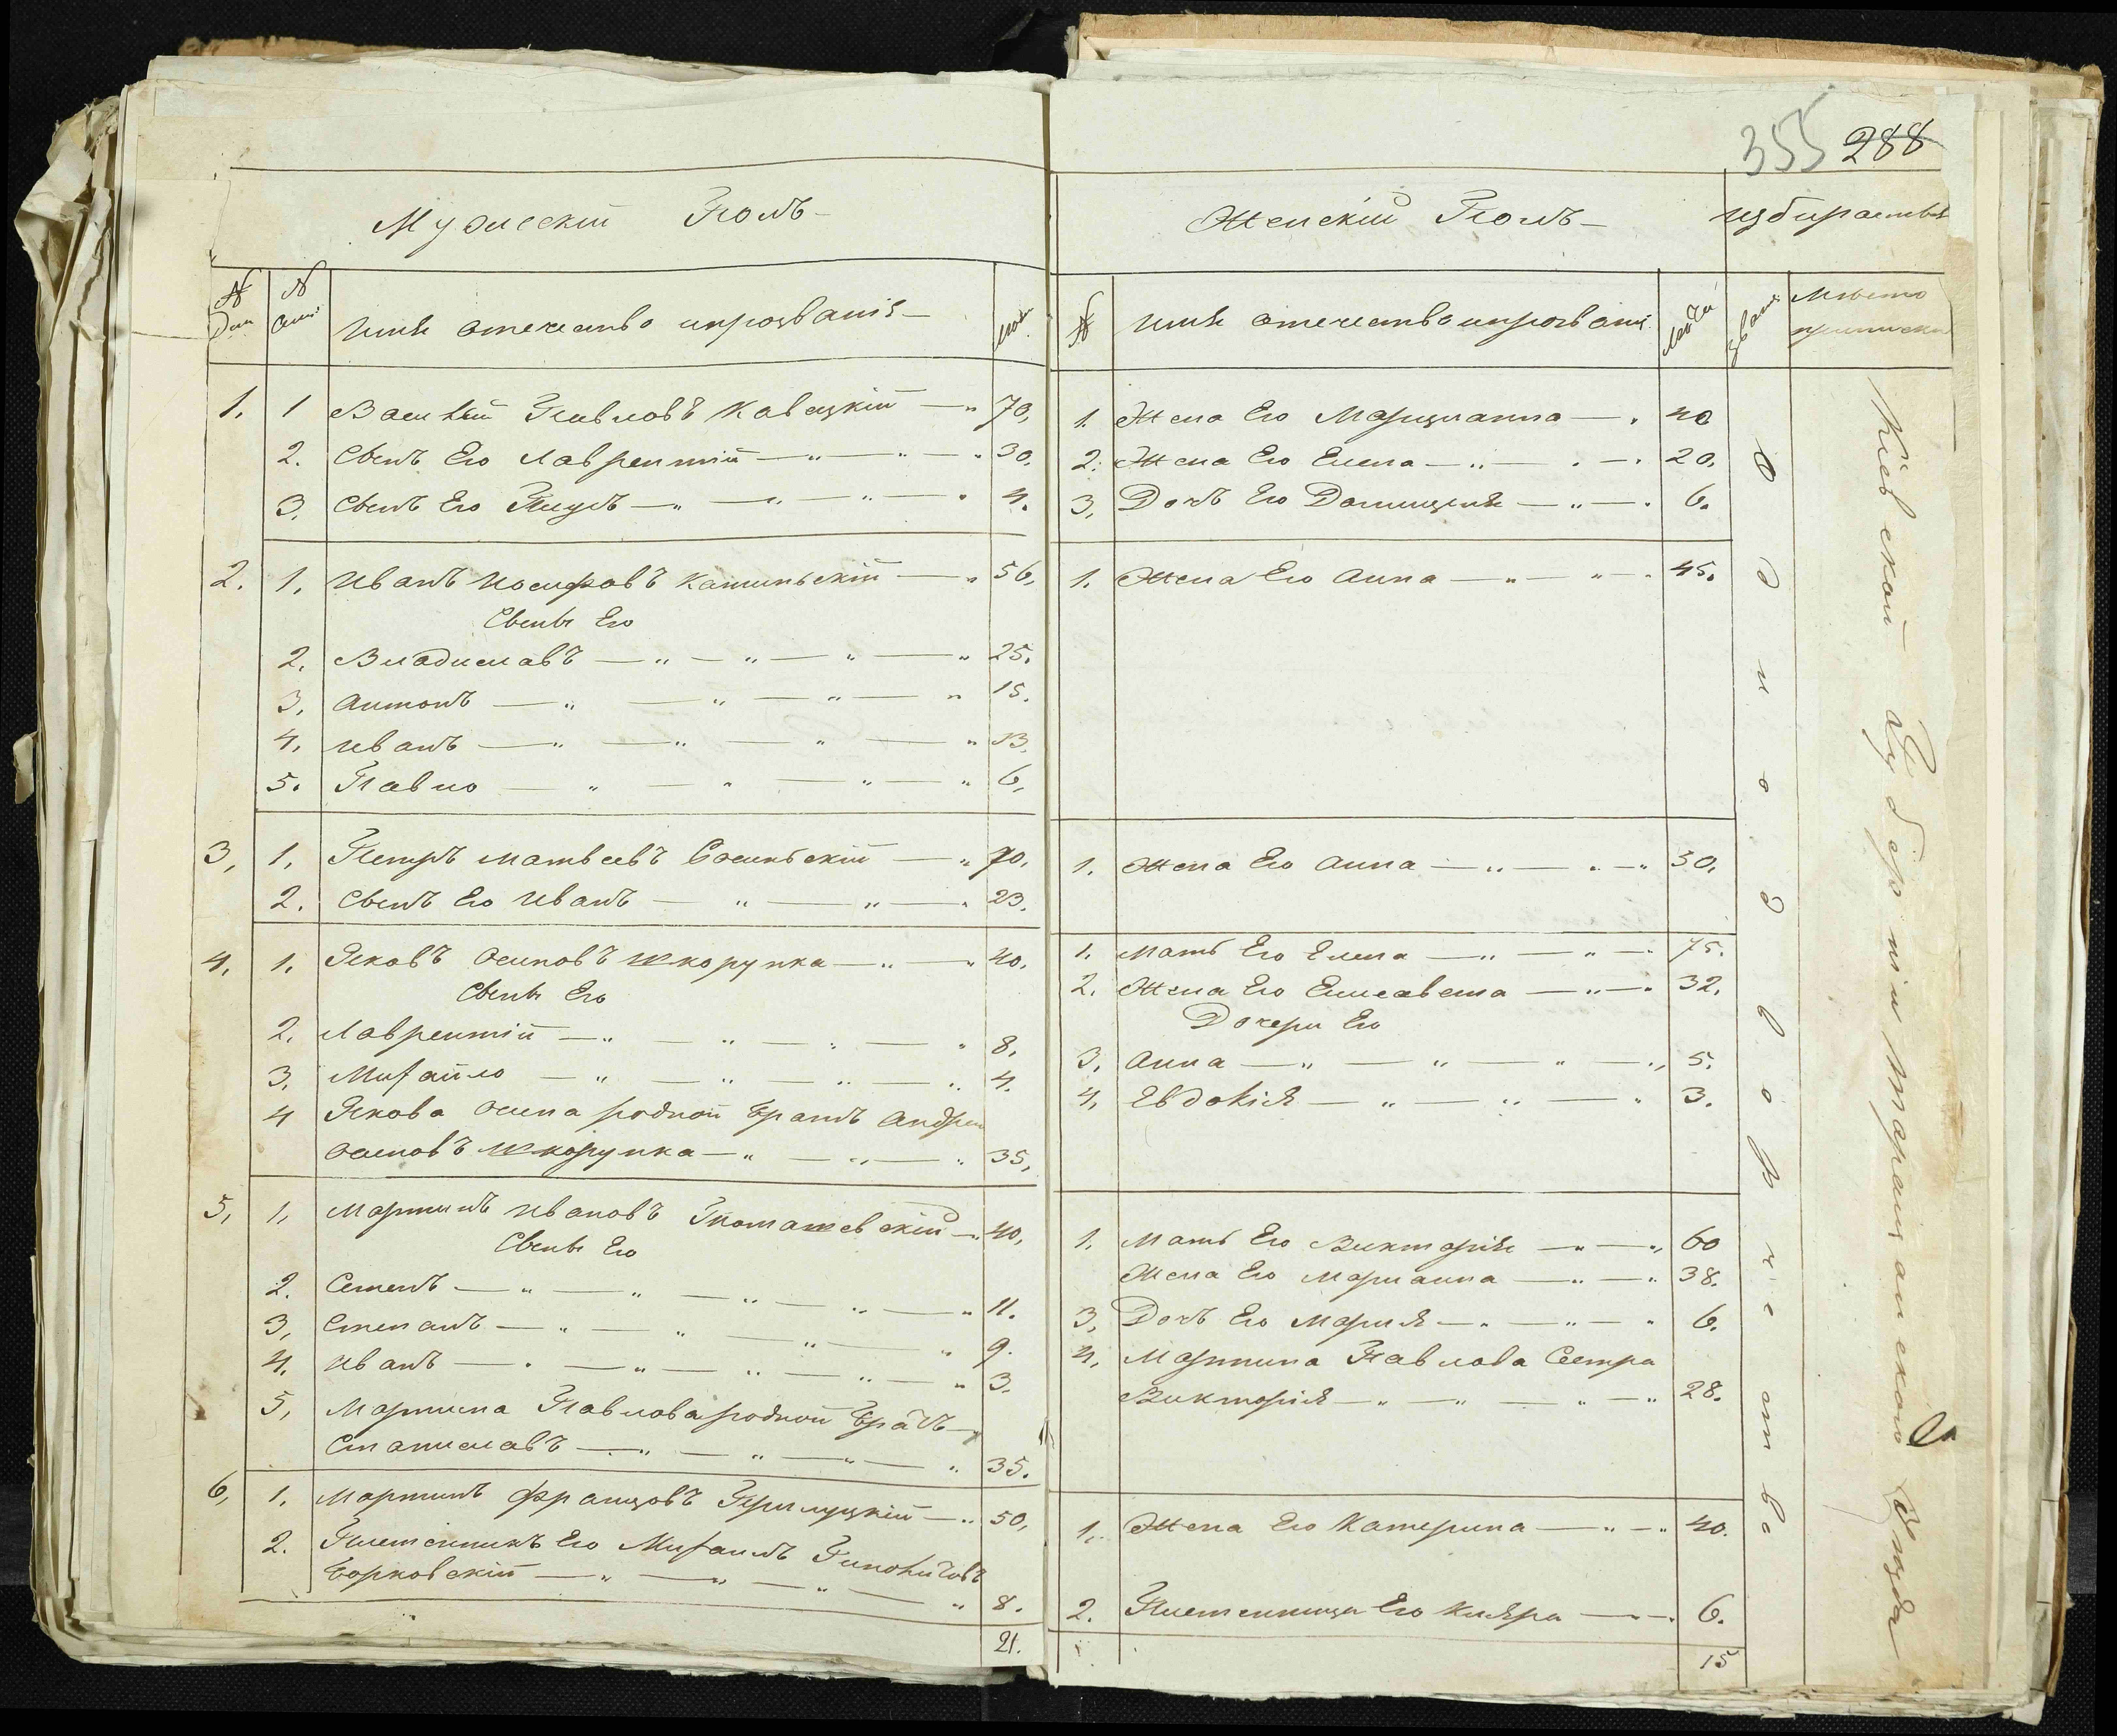 Мужескiй Полъ
№ Дом
№ Фами
Имя отечество ипрозванiя
лета
1. 1 Василiй Павловъ Кавецкiй 70,
2. Сынъ Его Лаврентiй 30.
3. Сынъ Его 4.
2. 1. Иванъ Иосифовъ Каминьскiй 56,
Сыны Его
2. Владиславъ 25.
3. Антонъ 15.
4. Иванъ 13.
5. Павло 6,
3, 1. Петръ Матвеевъ Сосиньскiй 70.
2. Сынъ Его Иванъ 23.
4. 1. Яковъ Осиповъ Шкорупка 40.
Сыны Его
2. Лаврентiй 8.
3. Михайло 4.
4 Якова Осипа родной Братъ Андрей
Осиповъ Шкорупка 35,
5, 1, Мартинъ Ивановъ Томашевскiй 40,
Сыны Его
2. Семенъ 11.
3, Степанъ 9.
4. Иванъ 3.
5, Мартина Павлова родной Братъ
Станиславъ 35.
6, 1. Мартинъ Францовъ Прилуцкiй 50,
2. Племенникъ Его Михаилъ
Борковскiй 8.
21.
355 288
Женскiй Полъ
избираетъ
№
Имя отечество ипрозванi
лета
Званiе
Место приписки
1. Жена Его Марцианна 40
2. Жена Его Елена 20.
3, Дочъ Его Доминцеля 6.
1. Жена Его Анна 45.
1. Жена Его Анна 30.
1. Мать Его Елена 75.
2. Жена Его Елисавета 32.
Дочери Его
3, Анна 5.
4, Евдокiя 3.
1. Мать Его Викторiя 60
Жена Его Марианна 38.
3, Дочъ Его Мария 6.
4, Мартина Павлова Сестра
Викторiя 28.
1. Жена Его Катерина 40.
2. Племенница Его Кляра 6.
15
Однодворчество
Кiевской Губернiи Таращанского Уезда